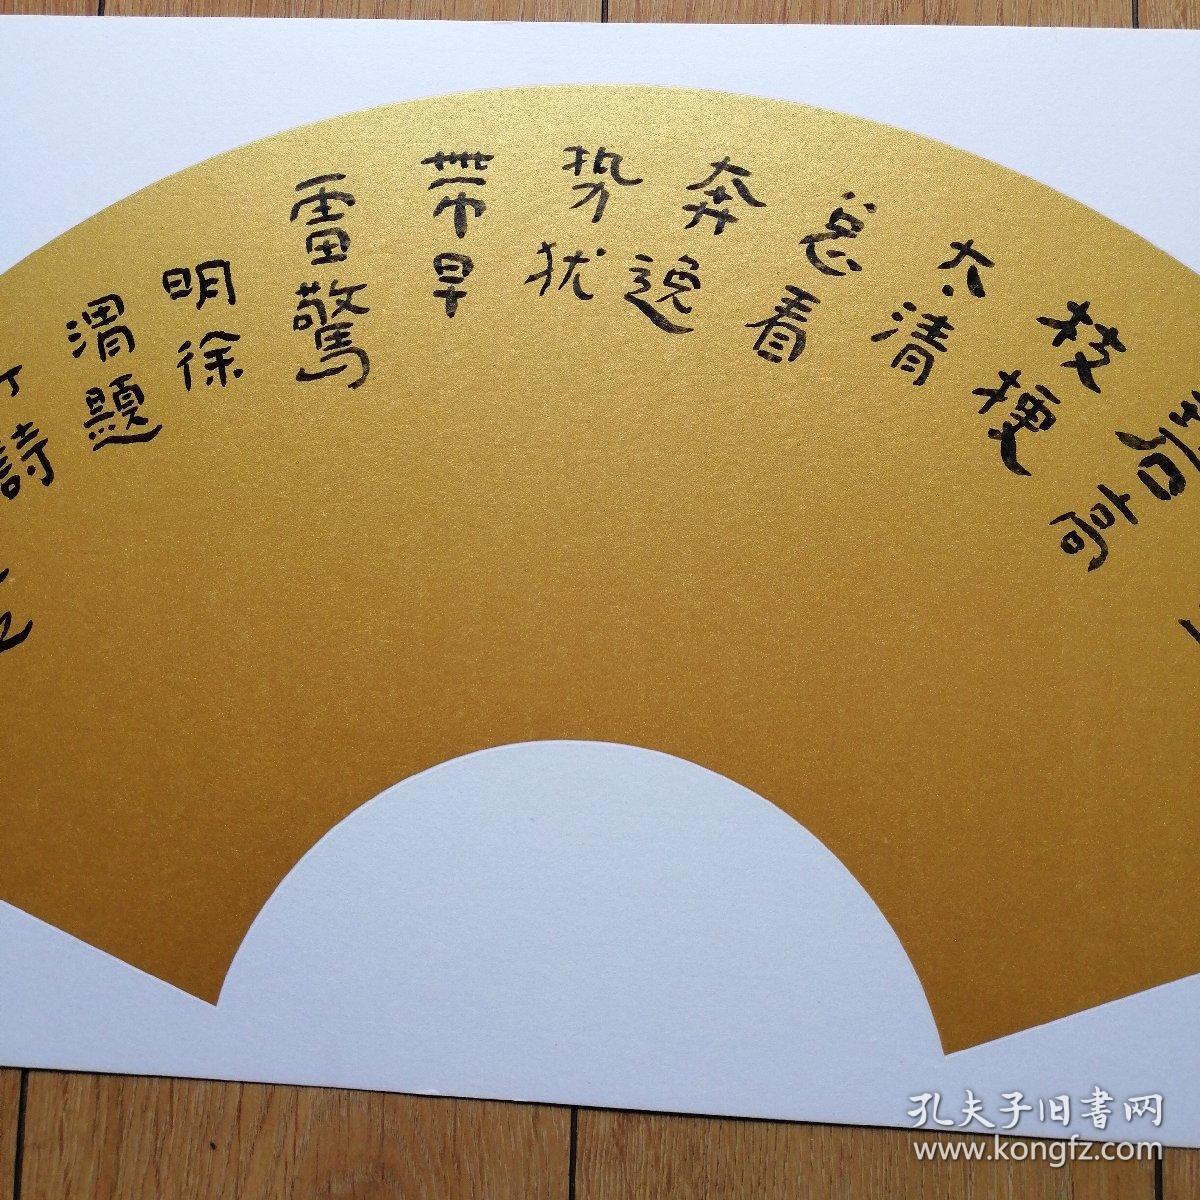 碧高
枝梗
太清
总看
奔逸
势犹
帶早
雷驚
明徐
渭題
詩
孔夫子旧書网
www.kongfz.com